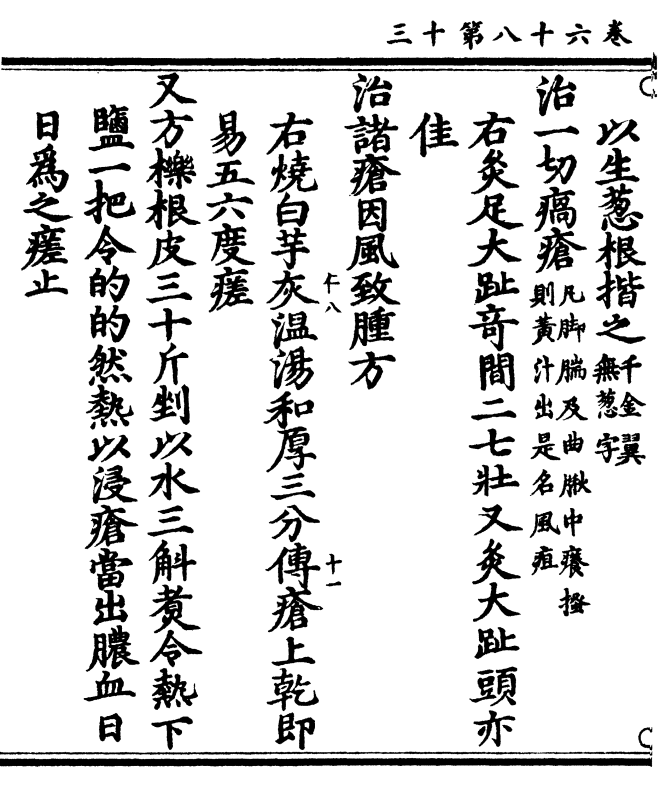 卷六十八第十三
以生葱根揩之千金翼無葱字
治一切瘑瘡凡脚腨及曲䐐中癢搔則黃汁出是名風疽
右灸足大趾奇間二七壯又灸大趾頭亦
佳
治諸瘡因風致腫方
右燒白芋灰温湯和厚三分傅瘡上乾即
易五六度瘥
又方櫟根皮三十斤剉以水三斛煑令熱下
鹽一把令的的然熱以浸瘡當出膿血日
日爲之瘥止
十一